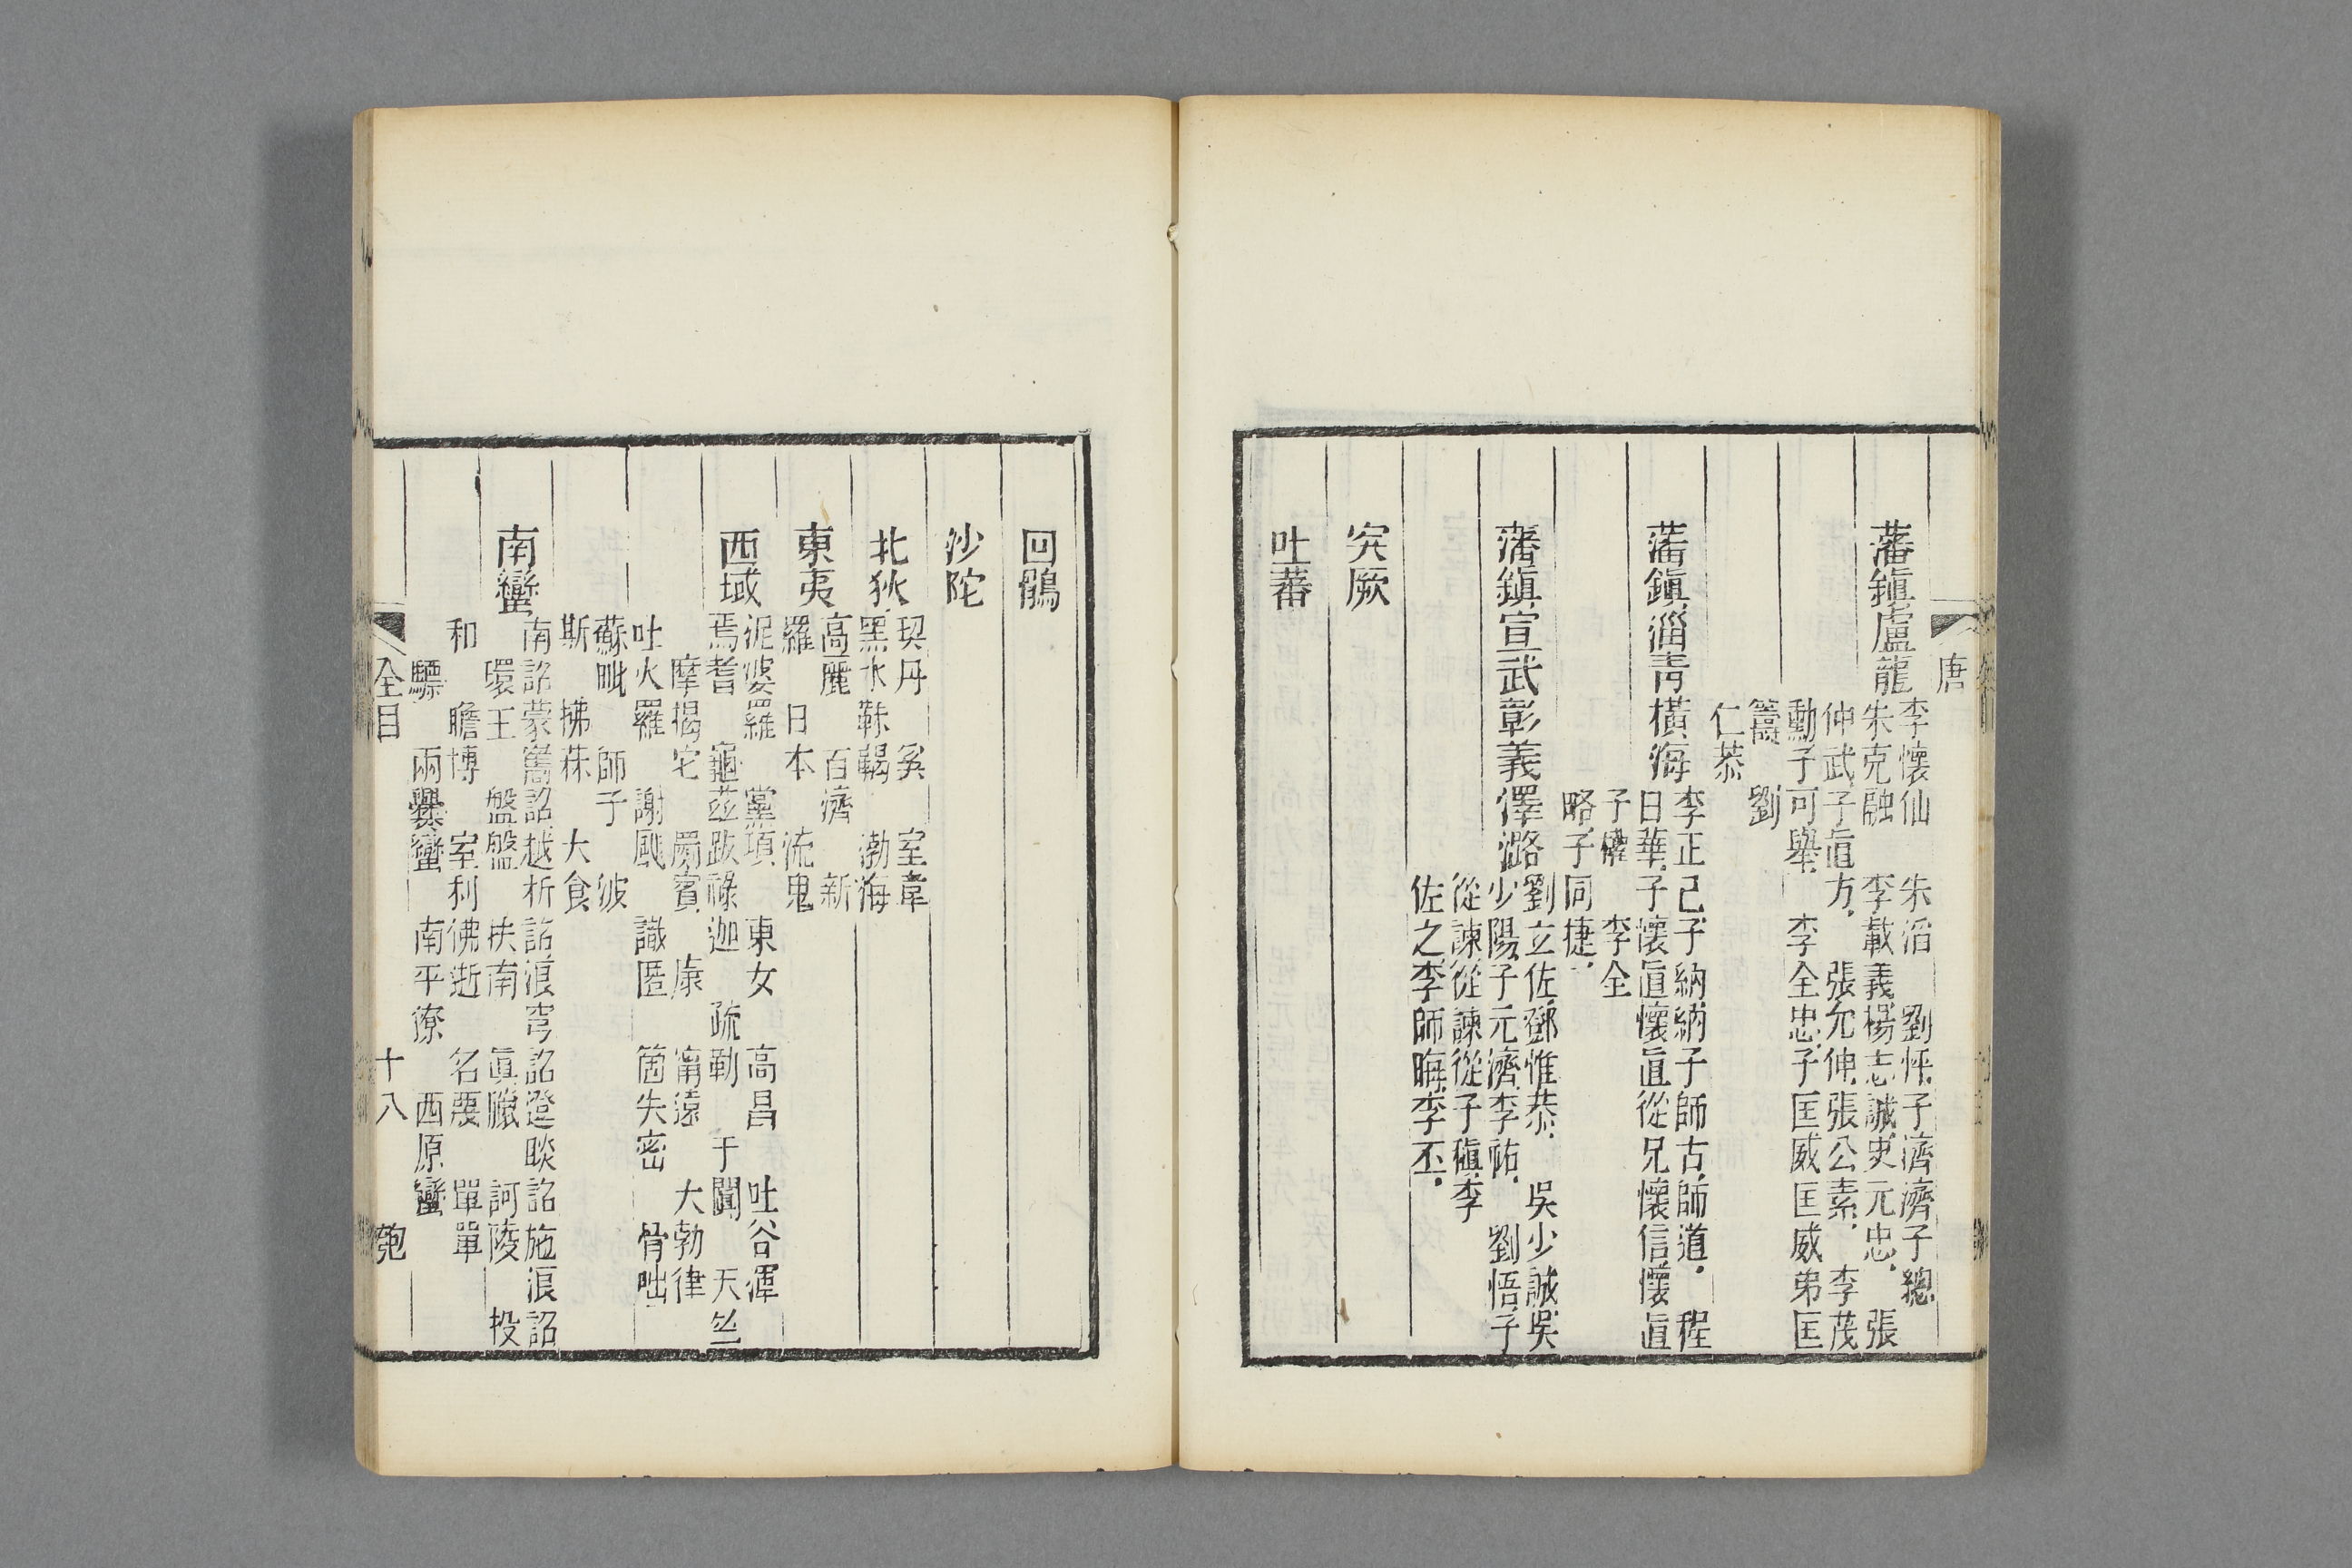 唐
藩鎮盧龍
李懷仙　朱滔　劉怦子濟濟子總
朱克融　李載義楊志誠史元忠　張
仲武子直方　張允伸張公素　李茂
勳子可舉　李全忠子匡威匡威弟匡
籌　劉
仁恭
藩鎮淄青橫海
李正己子納納子師古師道　程
日華子懷直懷直從兄懷信懷直
子權　李全
略子同捷
藩鎮宣武彰義澤潞
劉玄佐鄧惟恭　吳少誠吳
少陽子元濟李祐　劉悟子
從諫從諫從子稹李
佐之李師晦李丕
突厥
吐蕃
回鶻
沙陀
北狄
契丹　奚　室韋
黑水靺鞨　渤海
東夷
高麗　百濟　新
羅　日本　流鬼
西域
泥婆羅　黨項　東女　高昌　吐谷渾
焉耆　龜茲跋祿迦　疏勒　于闐　天竺
摩揭它　罽賓　康　甯遠　大勃律
吐火羅　謝䫻　識匿　箇失密　骨咄
蘇毗　師子　波
斯　拂菻　大食
南蠻
南詔蒙巂詔越析詔浪穹詔邆睒詔施浪詔
環王　盤盤　扶南　眞臘　訶陵　投
和　瞻博　室利佛逝　名蔑　單單
驃　兩爨蠻　南平獠　西原蠻
全目　十八